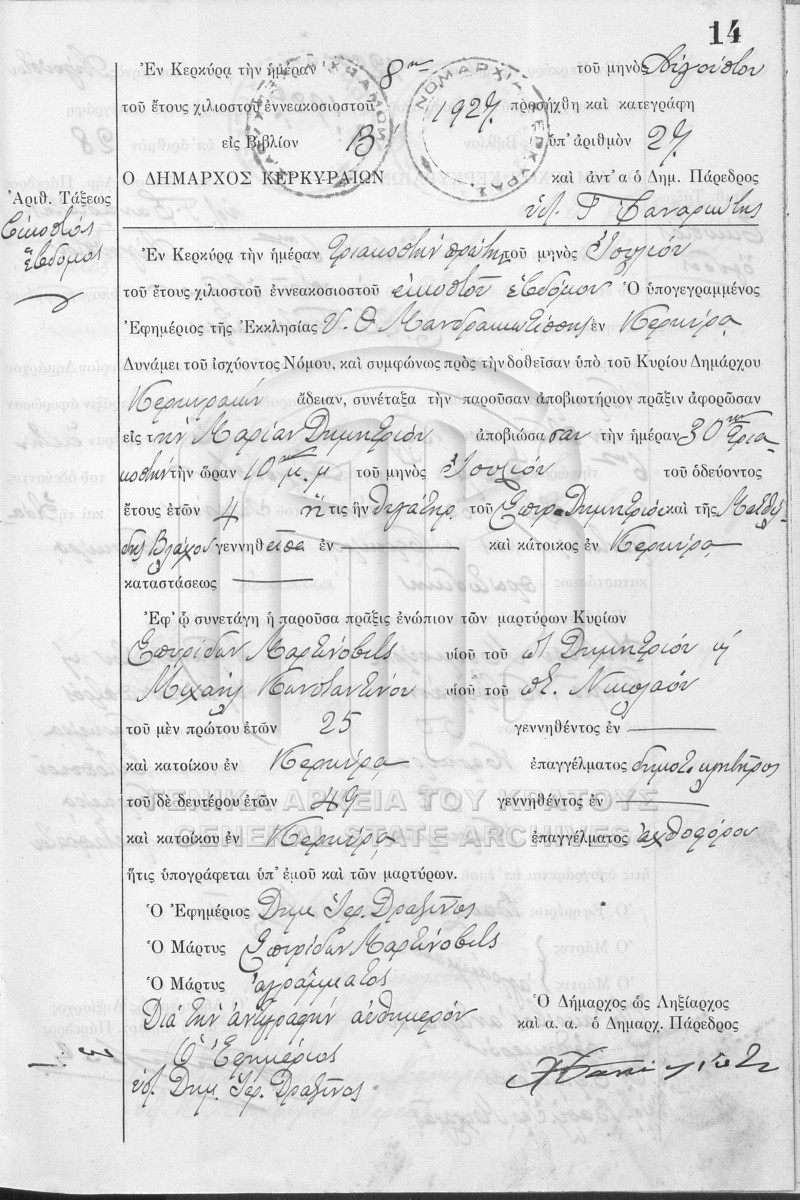 14
Ἐν Κερκύρᾳ τὴν ἡμέραν 8ην τοῦ μηνὸς Αὐγούστου
τοῦ ἔτους χιλιοστοῦ ἐννεακοσιοστοῦ 1927 προσήχθη καὶ κατεγράφη
εἰς Βιβλίον Β' ὑπ' ἀριθμὸν 27
Ο ΔΗΜΑΡΧΟΣ ΚΕΡΚΥΡΑΙΩΝ καὶ ἀντ' α ὁ Δημ. Πάρεδρος
Ἀριθ. Τάξεως
Εἰκοστὸς
ἕβδομος
Ἐν Κερκύρᾳ τὴν ἡμέραν τριακοστὴν πρώτην τοῦ μηνὸς Ἰουλίου
τοῦ ἔτους χιλιοστοῦ ἐννεακοσιοστοῦ εἰκοστοῦ ἑβδόμου Ὁ ὑπογεγραμμένος
Ἐφημέριος τῆς Ἐκκλησίας Υ. Θ Μανδρακιωτίσσης ἐν Κερκύρᾳ
Δυνάμει τοῦ ἰσχύοντος Νόμου, καὶ συμφώνως πρὸς τὴν δοθεῖσαν ὑπὸ τοῦ Κυρίου Δημάρχου
Κερκυραίων ἄδειαν, συνέταξα τὴν παροῦσαν ἀποβιωτήριον πρᾶξιν ἀφορῶσαν
εἰς τὴν Μαρίαν Δημητρίου ἀποβιώσασαν τὴν ἡμέραν 30ην τρια-
κοστὴν τὴν ὥραν 10 π.μ τοῦ μηνὸς Ἰουλίου τοῦ ὁδεύοντος
ἔτους ἐτῶν 4 ἥτις ἦν θυγάτηρ τοῦ Σπυρ. Δημητρίου καὶ τῆς Ματθίλ-
δης Βλάχου γεννηθεῖσα ἐν — καὶ κάτοικος ἐν Κερκύρᾳ
καταστάσεως —
Ἐφ' ᾧ συνετάγη ἡ παροῦσα πρᾶξις ἐνώπιον τῶν μαρτύρων Κυρίων
Σπυρίδων Μαρτίνοβιτς υἱοῦ τοῦ Δημητρίου ἢ
Μιχαὴλ Κωνσταντίνου υἱοῦ τοῦ Νικολάου
τοῦ μὲν πρώτου ἐτῶν 25 γεννηθέντος ἐν —
καὶ κατοίκου ἐν Κερκύρᾳ ἐπαγγέλματος δημοτ. κλητῆρος
τοῦ δὲ δευτέρου ἐτῶν 49 γεννηθέντος ἐν —
ΓΕΝΙΚΑ ΑΡΧΕΙΑ ΤΟΥ ΚΡΑΤΟΥΣ
GENERAL STATE ARCHIVES
καὶ κατοίκου ἐν Κερκύρᾳ ἐπαγγέλματος ἀχθοφόρου
ἥτις ὑπογράφεται ὑπ' ἐμοῦ καὶ τῶν μαρτύρων.
Ὁ Ἐφημέριος Δημ. Ἱερ. Δραζῖνος
Ὁ Μάρτυς Σπυρίδων Μαρτίνοβιτς
Ὁ Μάρτυς ἀγράμματος
Διὰ τὴν ἀντιγραφὴν αὐθημερόν
Ὁ Ἐφημέριος
ὑπ. Δημ. Ἱερ. Δραζῖνος
Ὁ Δήμαρχος ὡς Ληξίαρχος
καὶ α. α. ὁ Δημαρχ. Πάρεδρος